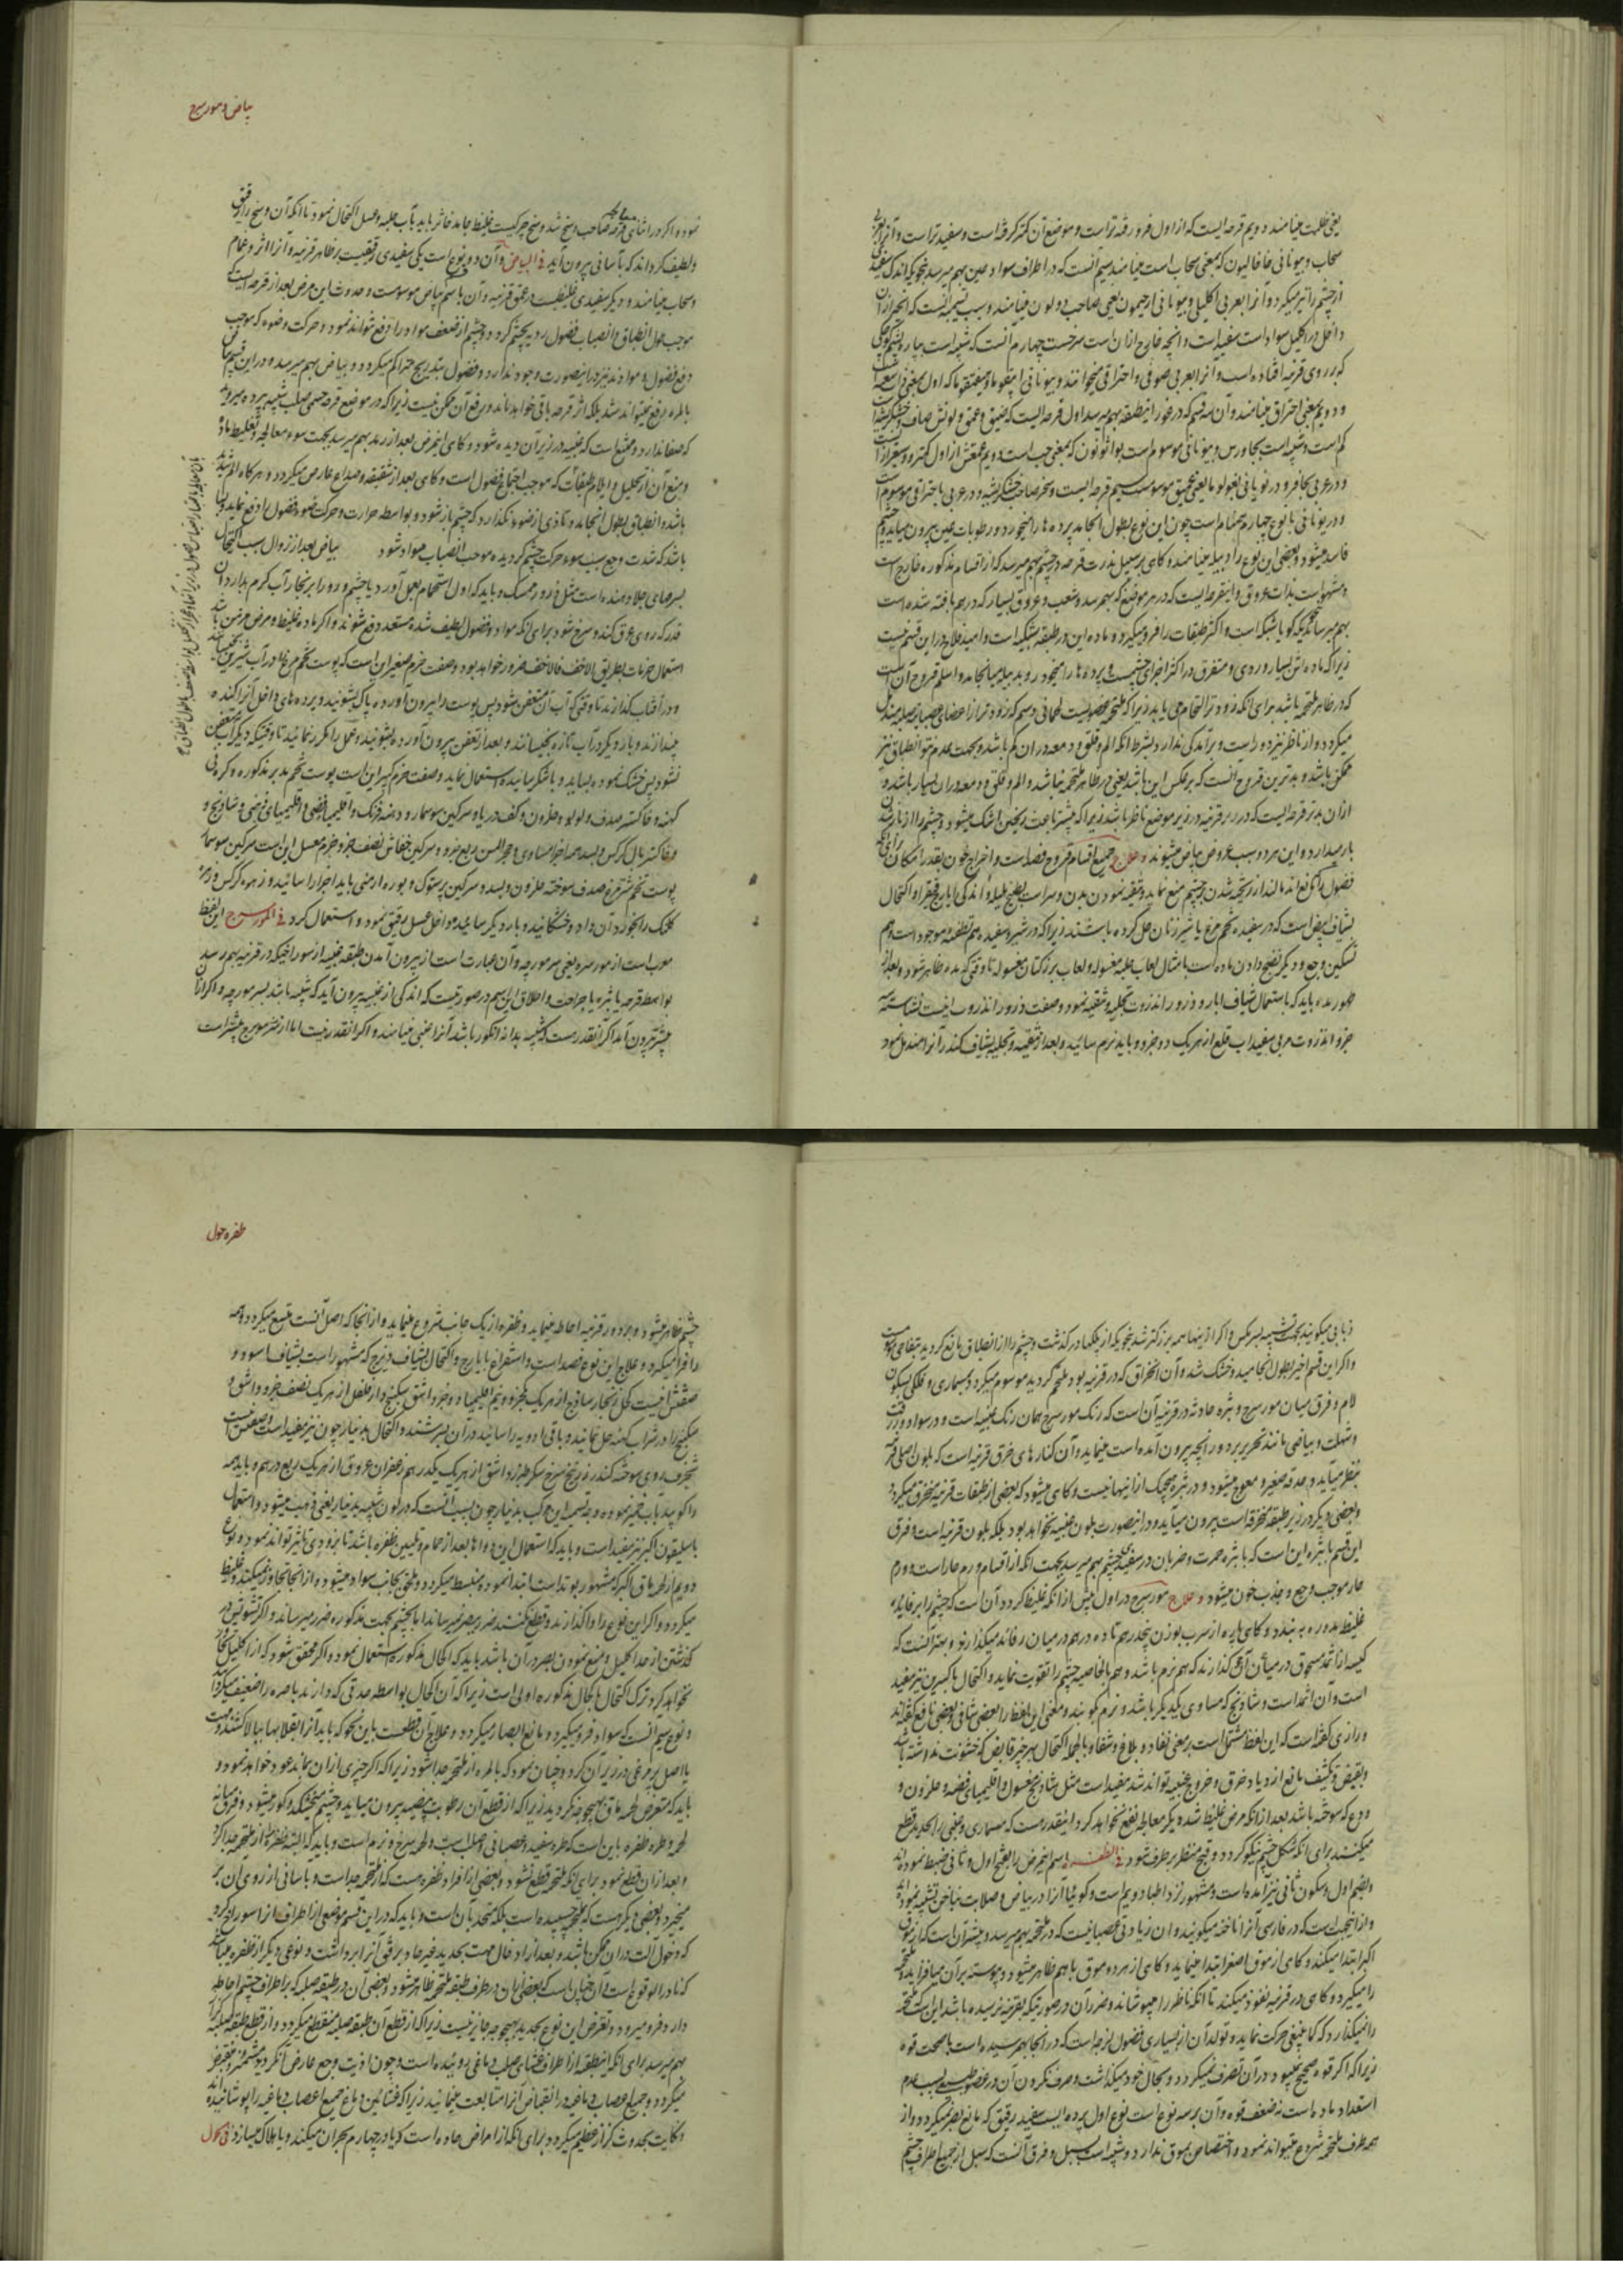 یعنی ظلمت مینامند دویم قرحه ایست که از اول فرو رفته تر است و موضع آن کمتر گرفته است و سفید تر است و آنرا بعربی
سحاب و بیونانی که بمعنی سحاب است مینامند سیم آنست که در اطراف سواد عین بهم میرسد بنحویکه اندک سفیدی
از چشم را نیز میگیرد و آنرا بعربی اکلیلی و بیونانی ارجیمون یعنی صاحب دو لون مینامند و سبب تسمیه آنست که آنچه از آن
داخل در اکلیل سواد است سفید است و آنچه خارج از آن است سرخست چهارم آنست که شبیه است بپاره پشم کوچکی
که بر روی قرنیه افتاده است و آنرا بعربی صوفی و احتراقی میخوانند و بیونانی که اول بمعنی
و دویم بمعنی احتراق مینامند و آن سه قسم که در غور این طبقه بهم میرسد اول قرحه ایست که ضیق و عمق و لونش صاف و خشکریشه
کم است و شبیه است بجاورس و بیونانی موسوم است که بمعنی حب است دویم عمقش از اول کمتر و وسیعتر از آنست
و در عربی بحافر و در یونانی یعنی عمیق موسومست سیم قرحه ایست وسخ صاحب خشکریشه و در عربی باحتراقی موسوم است
و در یونانی با نوع چهارم همنام است چون این نوع بطول انجامد پرده ها را میخورد و رطوبات عین بیرون میاید و چشم
فاسد میشود و بعضی این نوع را دبیله مینامند و گاهی بر سبیل ندرت قرحه در چشم بهم میرسد که از اقسام مذکوره خارج است
و مشهور است بذات عروق و این قرحه ایست که در هر موضع که بهم رسد و شعب و عروق بسیار که در هم بافته شده است
بهم میرساند که گویا شبکه است و اکثر طبقات را فرو میگیرد و ماده این در طبقه شبکیه است و امید فلاح در این قسم نیست
زیرا که ماده اش بسیار و ردی و متفرق در اکثر اجزای چشمست و پرده ها را میخورد و بدبیله میانجامد و اسلم قروح آن است
که در ظاهر ملتحمه باشد برای آنکه زود تر التحام می یابد زیرا که ملتحمه عضویست لحمانی و دسم که زودتر از اعضای عصبانیه صلبه مندمل
میگردد و از ناظر نیز دور است و برآمدگی ندارد بشرط آنکه الم و قلق و دمعه در آن کم باشد و بجهت عدم نتو انطباق نیز
ممکن باشد و بدترین قروح آنست که بر عکس این باشد یعنی در ظاهر ملتحمه نباشد و الم و قلق و دمعه در آن بسیار باشد و
از آن بدتر قرحه ایست که در بر قرنیه در زیر موضع ناظر باشد زیرا که بیشتر باعث ریختن اشک میشود و چشم را از باز شدن
باز میدارد و این هر دو سبب عروض بیاض میشوند و علاج جمیع اقسام قروح فصد است و اخراج خون بقدر امکان برای آنکه
فضول را از ریخته شدن بچشم منع نماید و تنقیه نمودن بدن و سر است بطبیخ هلیله و اندکی ایارج فیقرا و اکتحال
بشیاف ابیض است که در سفیده تخم مرغ یا شیر زنان حل کرده باشند زیرا که در شیر و سفیده هم تطفئه موجود است و هم
تسکین وجع و دیگر نضج دادن ماده است بامثال لعاب حلبه مغسوله و لعاب بزر کتان مغسوله تا وقتی که مده ظاهر شود و بعد از
ظهور مده باید که باستعمال شیاف ابار و ذرور انذروت تجلیه و تنقیه نمود و صفت ذرور انذروت اینست نشاسته سه
جزو انذروت مربی سفیداب قلع از هر یک دو جزو و باید نرم سائید و بعد از تنقیه و تجلیه بشیاف کندر آنرا مندمل نمود
بیاض و مورسرج
نمود و اگر در اثنای معالجه قرحه صاحب وسخ شد و وسخ چرکیست غلیظ جامد خاثر باید بآب حلبه و عسل اکتحال نمود تا آنکه آن وسخ را رقیق
و لطیف گرداند که بآسانی بیرون آید فی البیاض و آن دو نوع است یکی سفیدی رقیقیست بر ظاهر قرنیه و آنرا اثر و غمام
و سحاب مینامند و دیگر سفیدی غلیظست در عمق قرنیه و آن باسم بیاض موسومست و حدوث این مرض بعد از قرحه ایست
موجب طول انطباق و انصباب فضول ردیه بچشم گردد و چشم از ضعف مواد را دفع نتواند نمود و حرکت و ضوء که موجب
دفع فضول و مواد شد نیز در اینصورت وجود ندارد و فضول بتدریج متراکم میگردد و بیاض بهم میرسد و در این قسم بیاض
بالمره رفع نمیتواند شد بلکه اثر قرحه باقی خواهد ماند و رفع آن ممکن نیست زیرا که در موضع قرحه جسمی صلب شبیه بپرده میروید
که صفا ندارد و ممتنع است که عنبیه در زیر آن دیده شود و گاهی این مرض بعد از رمد بهم میرسد بجهت سوء معالجه و تغلیظ ماده
و منع آن از تحلیل و ایلام طبقات که موجب اجتماع فضول است و گاهی بعد از شقیقه و صداع عارض میگردد و هرگاه الم شدید
باشد و انطباق بطول انجامد و تاذی از ضوء نگذارد که چشم باز شود و بواسطه حرارت و حرکت ضوء فضول را دفع نماید و یا
باشد که شدت وجع سبب سوء حرکت چشم گردیده موجب انصباب مواد شود بیاض بعد از زوال سبب اکتحال
بسرمهای جلا دهنده است مثل ذرور مسک و باید که اول استحمام بعمل آورد یا چشم و رو را بر بخار آب گرم بدارد آن
قدر که روی عرق کند و سرخ شود برای آنکه مواد و فضول لطیف شده مستعد دفع شوند و اگر ماده غلیظ و مرض مزمن باشد
استعمال خرمات بطریق الاخف فالاخف ضرور خواهد بود و صفت خرم صغیر این است که پوست تخم مرغ را در آب شیرین بخیسانند
و در آفتاب گذارند تا وقتی که آب آن متعفن شود پس پوست را بیرون آورده پاک بشویند و پرده های داخل آنرا کنده
بیندازند و بار دیگر در آب تازه بخیسانند و بعد از تعفن بیرون آورده بشویند و عمل را مکرر نمائید تا وقتیکه دیگر آب متعفن
نشود پس خشک نموده بسایند و باشکر سائیده استعمال نمایند و صفت خرم کبیر این است پوست تخم مدبر مذکوره و کرم نی
کهنه و خاکستر صدف و لولو و حلزون و کف دریا و سرگین سوسمار و دهنه فرنگ و اقلیمیای فضی و اقلیمیای ذهبی و شادنج و
و خاکستر بال کرکس و بسد همه اجزا مساوی و حجر المسن ربع جزو و سرگین خفاش نصف جزو و خرم معسل این است سرگین سوسمار
پوست تخم شترمرغ صدف سوخته حلزون و بسد و سرگین پرستوک و بوره ارمنی باید اجزا را سائید و زهره کرکس و زهره
کلنگ را بخورد آن داد و خشکانید و بار دیگر سائید و داخل عسل رقیق نمود و استعمال کرد فی المورسرج این لفظ
معرب است از مورسره یعنی سر مورچه و آن عبارت است از بیرون آمدن طبقه عنبیه از سوراخیکه در قرنیه بهم رسد
بواسطه قرحه یا بثره یا جراحت و اطلاق این اسم در صورتیست که اندکی از عنبیه بیرون آید که شبیه باشد بسر مورچه و اگر از آن
بیشتر بیرون آید اگر آنقدر است که شبیه بدانه انگور باشد آنرا عنبی مینامند و اگر آنقدر نیست اما از سر مورچه بیشتر است
ذبابی میگویند بجهت تشبیه بسر مگس و اگر از اینها همه بزرگتر شد بنحویکه از پلکها در گذشت و چشم را از انطباق مانع گردید بتفاحی موسوم است
و اگر این قسم اخیر بطول انجامیده و خشک شده و آن انخراق که در قرنیه بود ملتحم گردید موسوم میگردد بمسماری و فلکی بسکون
لام و فرق میان مورسرج و بثره حادثه در قرنیه آن است که رنگ مورسرج همان رنگ عنبیه است و در سواد و زرقت
و شهلت و بیاضی مانند تحریر بر دور آنچه بیرون آمده است مینماید و آن کنارهای خرق قرنیه است که بلون اصلی خود
بنظر میآید و حدقه صغیر و معوج میشود و در بثره هیچیک از اینها نیست و گاهی میشود که بعضی از طبقات قرنیه منخرق میگردد
و بعضی دیگر در زیر طبقه منخرقه است بیرون میاید و در اینصورت بلون عنبیه نخواهد بود بلکه بلون قرنیه است و فرق
این قسم با بثره این است که با بثره حمرت و ضربان در سفیدی چشم بهم میرسد بجهت آنکه از اقسام ورم حار است و ورم
حار موجب وجع و جذب خون میشود و علاج مورسرج در اول پیش از آنکه غلیظ گردد آن است که چشم را بر فاده
غلیظ مدوره به بندد و گاهی پاره از سرب بوزن پنجدرهم تا ده درهم در میان رفاده میگذارند و بهتر آنست که
کیسه از اثمد مسحوق در میان آن گذارند که هم نرم باشد و هم بالخاصیه چشم را تقویت نماید و اکتحال باکسیرین نیز مفید
است و آن اثمد است و شادنج که مساوی یکدیگر باشد و نرم کوبند و معنی این لفظ را بعضی شافی و بعضی نافع گفته اند
و رازی گفته است که این لفظ مشتمل است بر معنی نفاد و بلاغ و شفا و بالجمله اکتحال بهر چیز قابض که خشونت نداشته باشد
و بقبض و تکثیف مانع ازدیاد خرق و خروج عنبیه تواند شد مفید است مثل شادنج مغسول و اقلیمیای فضه و حلزون و
ودع که سوخته باشد بعد از آنکه مرض غلیظ شده دیگر معالجه نفع نخواهد کرد اینقدر هست که مسماری و عنبی را بحدید قطع
میکنند برای آنکه شکل چشم نیکو گردد و قبح منظر بر طرف شود فی الظفره اسم این مرض را بفتح اول و ثانی ضبط نموده اند
و بضم اول و سکون ثانی نیز آمده است و مشهور نزد اطبا دویم است و گویا آنرا در بیاض و صلابت بناخن تشبیه نموده اند
و از اینجهت است که در فارسی آنرا ناخنه میگویند و آن زیادتی عصبانیست که در ملتحمه بهم میرسد و بیشتر آن است که از موق
اکبر ابتدا میکند و گاهی از موق اصغر ابتدا مینماید و گاهی از هر دو موق با هم ظاهر میشود و پیوسته بر آن میافزاید و ملتحمه
را میگیرد و گاهی در قرنیه نفوذ میکند تا آنکه ناظر را میپوشاند و ضرر آن در صورتیکه بقرنیه نرسیده باشد این است که مقله
را نمیگذارد که کما ینبغی حرکت نماید و تولد آن از بسیاری فضول لزجه است که در آنجا بهم رسیده است با صحت قوه
زیرا که اگر قوه صحیح نمیبود در آن تصرف نمیگردد و بحال خود میگذاشت و صرف نکردن آن در عضو طبیعی بسبب عدم
استعداد ماده است نه ضعف قوه و آن بر سه نوع است نوع اول پرده ایست سفید رقیق که مانع بصر نمیگردد و از
همه طرف ملتحمه شروع میتواند نمود و اختصاص بموق ندارد و شبیه است بسبل و فرق آنست که سبل از جمیع اطراف چشم
ظفره حول
چشم ظاهر میشود و بر دور قرنیه احاطه مینماید و ظفره از یک جانب شروع مینماید و از آنجا که اصل آنست متسع میگردد و همه
را فرا میگیرد و علاج این نوع فصد است و استفراغ بایارج و اکتحال بشیاف دیزج که مشهور است بشیاف اسود و
صفتش اینست کحل زنجار سادج از هر یک جزو و نیم اقلیمیا دو جزو اشق سکبینج دارفلفل از هر یک نصف جزو و اشق و
سکبینج را در شراب کهنه حل نمائید و باقی ادویه را سائیده در آن بسرشند و اکتحال بدینارجون نیز مفید است و صفتش اینست
شنجرف روی سوخته کندر زرنیخ سرخ سکر طبرزد اشق از هر یک یکدرهم زعفران عروق از هر یک ربع درهم و باید همه
را کوبید بآب خمیر نموده و وجه تسمیه این مرکب بدینارجون بسبب آنست که در لون شبیه بدینار یعنی ذهب میشود و استعمال
باسلیقون اکبر نیز مفید است و باید که استعمال این دواها بعد از حمام و تلیین ظفره باشد تا بزودی تاثیر تواند نمود و نوع
دویم از لحمه ماق اکبر که مشهور بتوته است ابتدا نموده منبسط میگردد و ملحق بجانب سواد میشود و از آنجا تجاوز نمیکند و غلیظ
میگردد و اگر این نوع را واگذارند و قطع نکنند ضرر ببصر نمیرساند اما بچشم بجهت مذکوره ضرر میرساند و اگر تشویش در
گذشتن از حد اکلیل و منع نمودن بصر در آن باشد باید که اکحال مذکوره استعمال نمود و اگر محقق شود که از اکلیل تجاوز
نخواهد کرد ترک اکتحال باکحال مذکوره اولی است زیرا که آن اکحال بواسطه حدتی که دارند باصره را ضعیف میگرداند
و نوع سیم آنست که سواد فرو میگیرد و مانع ابصار میگردد و علاج آن قطعست باین نحو که باید آنرا بقلابها ببالا کشند و مهت
یا اصل پر مرغی در زیر آن کرد و چنان نمود که بالمره از ملتحمه جدا شود زیرا که اگر چیزی از آن بماند عود خواهد نمود و
باید که متعرض لحمه ماق بهیچوجه نگردید زیرا که از قطع آن رطوبت بیضیه بیرون میاید و چشم میخشکد و کور میشود و فرق میانه
لحمه و طره ظفره باین است که طره سفید و عصبانی و صلب است و لحمه سرخ و نرم است و باید که البته ظفره را از ملتحمه جدا کرد
و بعد از آن قطع نمود برای آنکه ملتحمه قطع نشود و بعضی از افراد ظفره هست که از ملتحمه جدا است و بآسانی از روی آن بر
میخیزد و بعضی دیگر هست که بملتحمه چسبیده است بلکه متحد با آن است و باید که در این قسم موضعی از اطراف آنرا سوراخ کرد
که دخول آلت در آن ممکن باشد و بعد از ادخال مهت بحدید غیر حاد برفق آنرا برداشت و نوعی دیگر از ظفره میباشد
که نادر الوقوع است و آن چنان است که بعضی از آن در طرف طبقه ملتحمه ظاهر میشود و بعضی آن در طبقه صلبه که بر اطراف چشم احاطه
دارد فرو میرود و تعرض این نوع بحدید بهیچوجه جایز نیست زیرا که از قطع آن طبقه صلبه منقطع میگردد و از قطع طبقه صلبه کزاز
بهم میرسد برای آنکه این طبقه از اطراف غشای صلب دماغی روئیده است و چون اذیت وجع عارض آن گردد متشمر و منقبض
میگردد و جمیع اعصاب دماغیه در انقباض آنرا متابعت مینمایند زیرا که غشائین دماغ جمیع اعصاب دماغیه را پوشانیده اند
و نکایت بحدوث کزاز عظیم میگردد برای آنکه از امراض حاده است که یا در چهارم بحران میکند و یا هلاک میسازد فی الحول